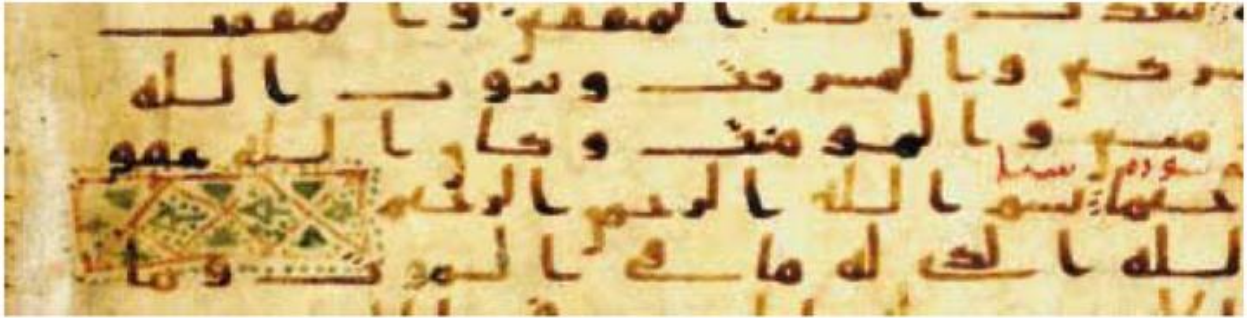 ليعذب الله المنفقين والمنفقت
شركين والمشركت ويتوب الله
منين والمومنت وكان الله غفو
سورة سبا
حيما بسم الله الرحمن الرحيم
لله الذي له ما في السموت وما